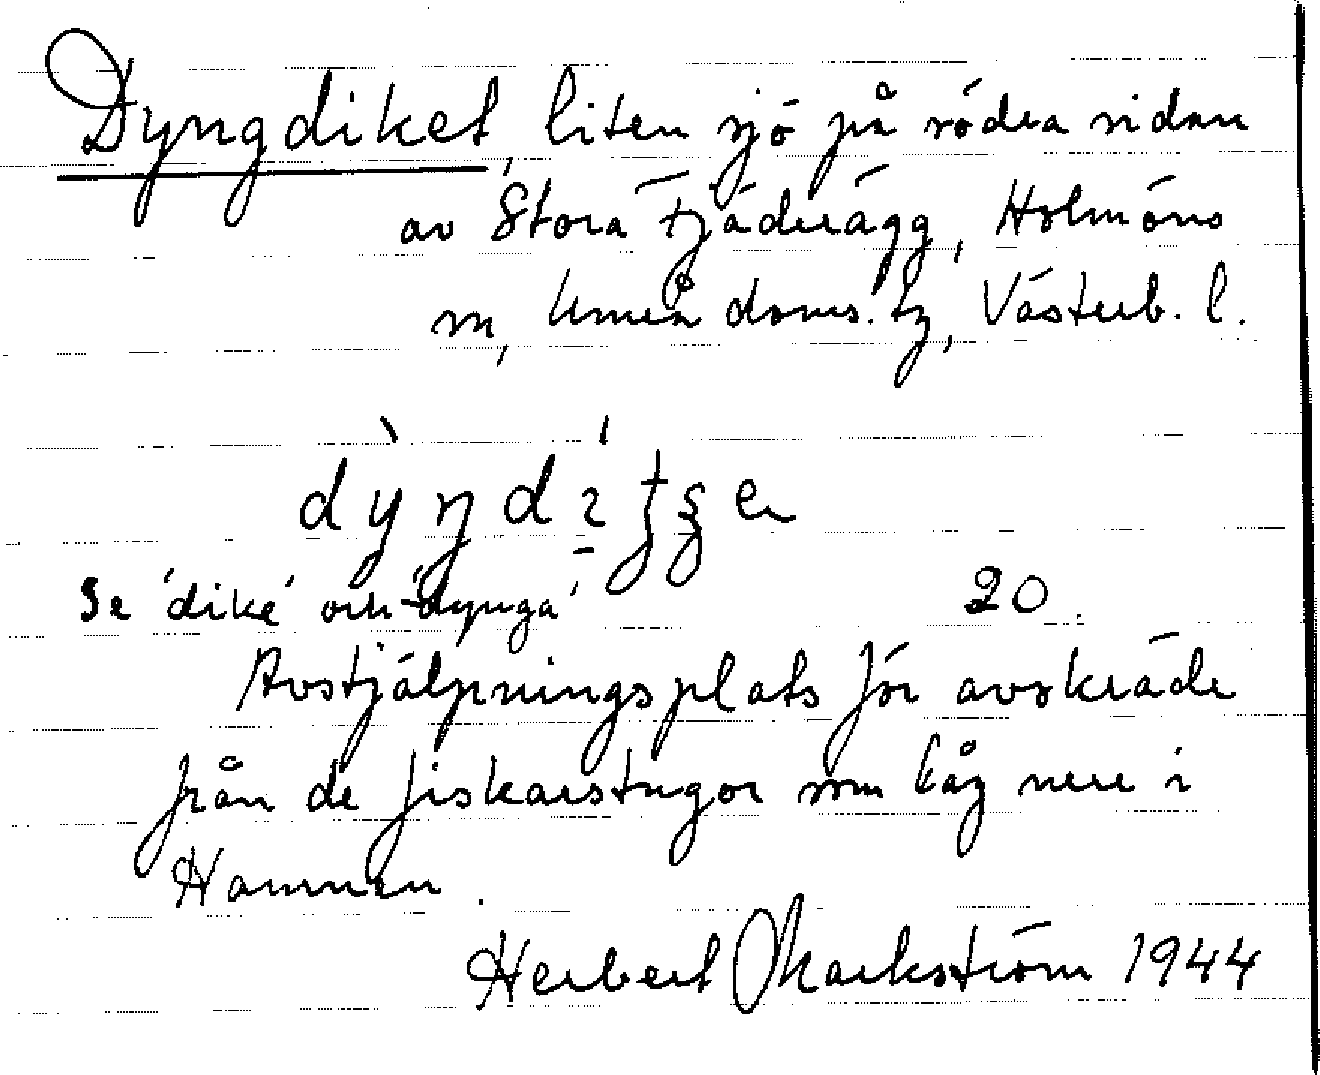 Dyngdiket, liten sjö på södra sidan
av Stora Fjäderägg, Holmöns
sn, Umeå doms. tg, Västerb. l.
Se 'dike' och 'dynga' 20.
Avstjälpningsplats för avskräde
från de fiskarstugor som låg nere i
Hamnen.
Herbert Markström 1944